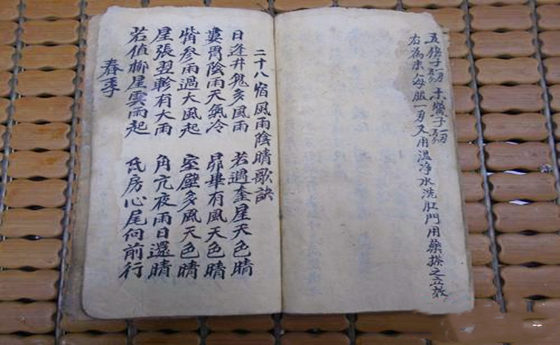 五倍子 木鱉子
右為末每服一 又用溫淨水洗肛門用藥搽之立效
二十八宿風雨陰晴歌訣
日逢井鬼多風雨 若遇奎星天色晴
婁胃陰雨天氣冷 昴畢有風天色晴
觜參雨過大風起 室壁多風天色晴
屋張翌軫有大雨 角亢夜雨日還晴
若值柳星雲雨起 氐房心尾向前行
春季